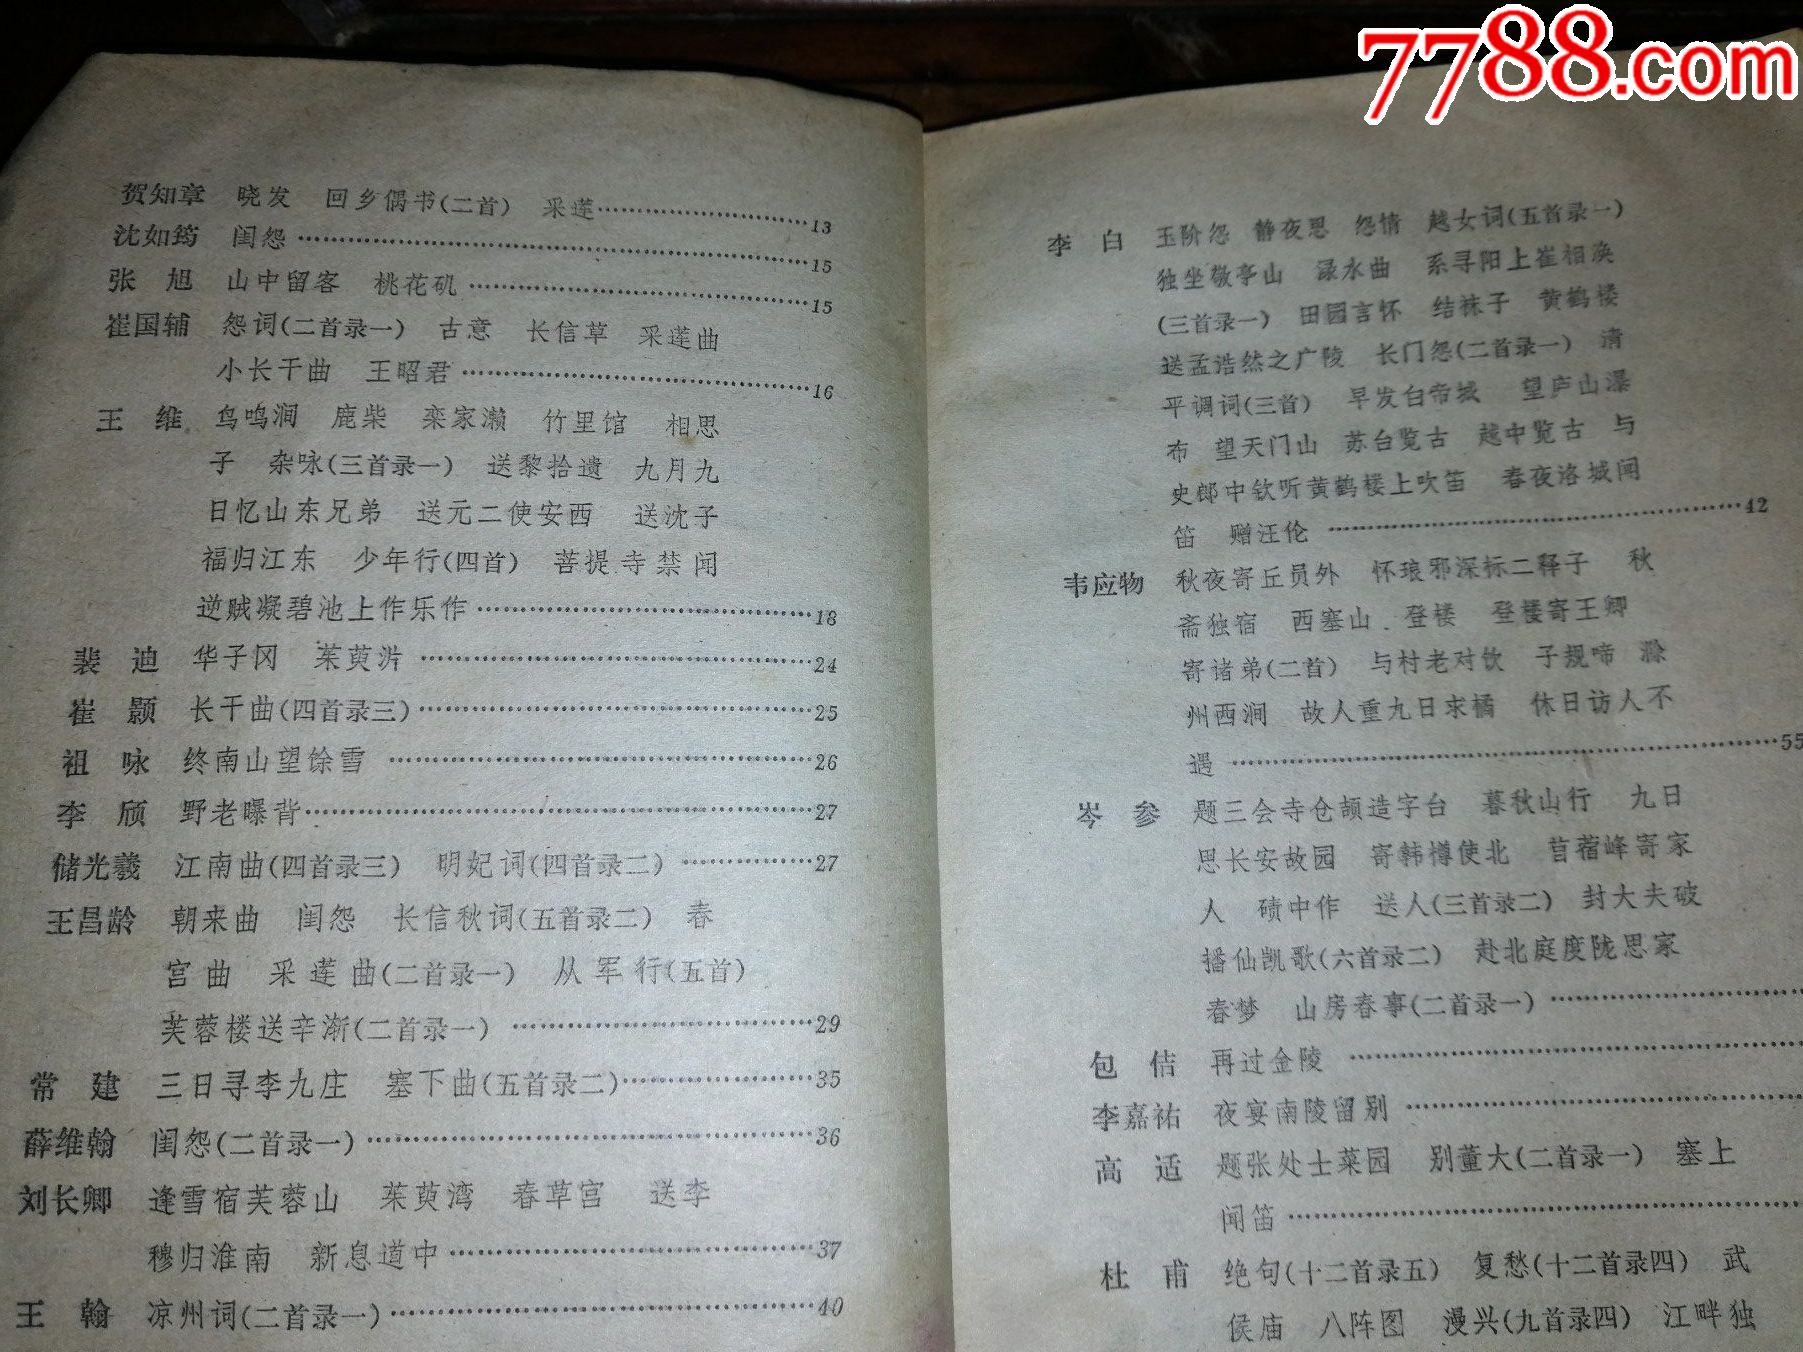 7788.com
贺知章 晓发 回乡偶书(二首) 采莲……13
沈如筠 闺怨……15
张旭 山中留客 桃花矶……15
崔国辅 怨词(二首录一) 古意 长信草 采莲曲
小长干曲 王昭君……16
王维 鸟鸣涧 鹿柴 栾家濑 竹里馆 相思
子 杂咏(三首录一) 送黎拾遗 九月九
日忆山东兄弟 送元二使安西 送沈子
福归江东 少年行(四首) 菩提寺禁闻
逆贼凝碧池上作乐作……18
裴迪 华子冈 茱萸沜……24
崔颢 长干曲(四首录三)……25
祖咏 终南山望馀雪……26
李颀 野老曝背……27
储光羲 江南曲(四首录三) 明妃词(四首录二)……27
王昌龄 朝来曲 闺怨 长信秋词(五首录二) 春
宫曲 采莲曲(二首录一) 从军行(五首)
芙蓉楼送辛渐(二首录一)……29
常建 三日寻李九庄 塞下曲(五首录二)……35
薛维翰 闺怨(二首录一)……36
刘长卿 逢雪宿芙蓉山 茱萸湾 春草宫 送李
穆归淮南 新息道中……37
王翰 凉州词(二首录一)……40
李白 玉阶怨 静夜思 怨情 越女词(五首录一)
独坐敬亭山 渌水曲 系寻阳上崔相涣
(三首录一) 田园言怀 结袜子 黄鹤楼
送孟浩然之广陵 长门怨(二首录一) 清
平调词(三首) 早发白帝城 望庐山瀑
布 望天门山 苏台览古 越中览古 与
史郎中钦听黄鹤楼上吹笛 春夜洛城闻
笛 赠汪伦……42
韦应物 秋夜寄丘员外 怀琅邪深标二释子 秋
斋独宿 西塞山 登楼 登楼寄王卿
寄诸弟(二首) 与村老对饮 子规啼 滁
州西涧 故人重九日求橘 休日访人不
遇……55
岑参 题三会寺仓颉造字台 暮秋山行 九日
思长安故园 寄韩樽使北 苜蓿峰寄家
人 碛中作 送人(三首录二) 封大夫破
播仙凯歌(六首录二) 赴北庭度陇思家
春梦 山房春事(二首录一)……
包佶 再过金陵……
李嘉祐 夜宴南陵留别……
高适 题张处士菜园 别董大(二首录一) 塞上
闻笛……
杜甫 绝句(十二首录五) 复愁(十二首录四) 武
侯庙 八阵图 漫兴(九首录四) 江畔独